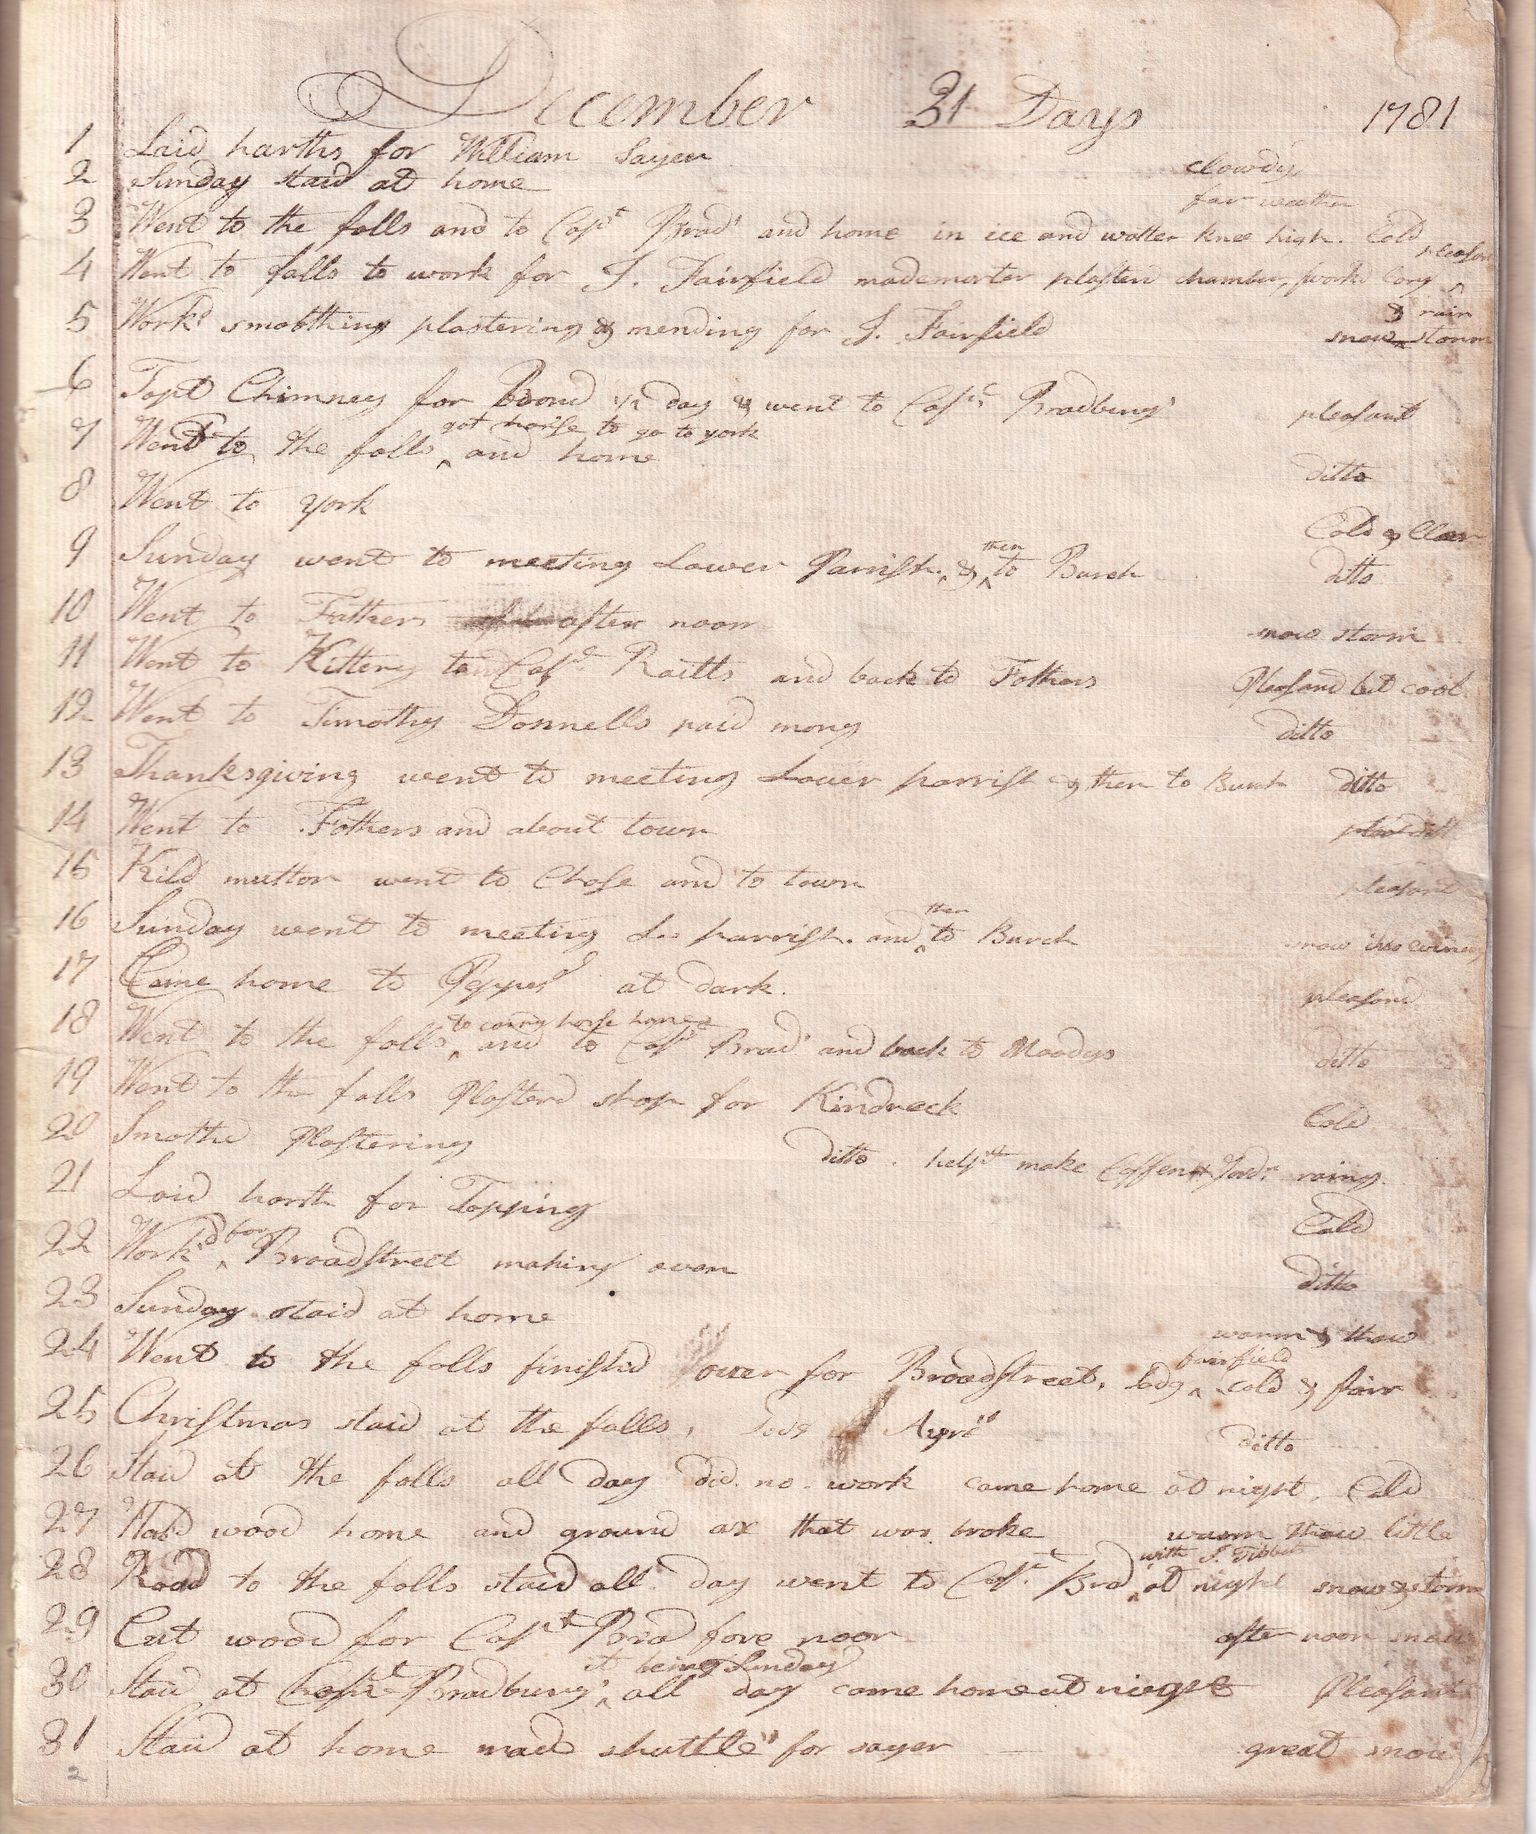 December 31 Days 1781
1 Laid harths for William Sayer clowdy
2 Sunday staid at home far weather
3 Went to the falls and to Capt Brad' and home in ice and watter knee high. Cold
4 Went to falls to work for J. Fairfield made morter plasterd chamber, workd long ^ pleasan
5 Work'd smothing plastering & mending for J. Fairfield snow ^ & rain storm
6 Topt Chimney for 1/2 day & went to Capt Bradbury' pleasant
7 Went to the falls ^ got horse to go to york and home ditto
8 Went to york Cold & Clear
9 Sunday went to meeting Lower Parrish. & ^ then to Burch ditto
10 Went to Fathers after noon snow storm
11 Went to Kittery to Capt Raitts and back to Fathers Pleasand but cool
12 Went to Timothy Donnells paid mony ditto
13 Thanksgiving went to meeting Lower parrish & then to Burch ditto
14 Went to Fathers and about town
15 Kild mutton went to Chase and to town pleasant
16 Sunday went to meeting Lo parrish. and ^ then to Burch snow
17 Came home to at dark. pleasand
18 Went to the falls ^ to carry horse home and to Capt Brad' and back to Moodys ditto
19 Went to the falls Plasterd shop for Kindreck Cold
20 Smothd Plastering ditto. help'd make Coffen rainy
21 Laid harth for Topping Cold
22 Work'd ^ for Broadstreet making oven ditto
23 Sunday staid at home warm & thaw
24 Went to the falls finishd oven for Broadstreet, Lodg ^ fairfield cold & fair
25 Christmas staid at the falls, Lodg Ayrs ditto
26 Staid at the falls all day did no work came home at night, Cold
27 Hald wood home and ground ax that was broke warm thaw little
28 Road to the falls staid all day went to Capt Brad ^ with J. Tibbets at night snow storm
29 Cut wood for Capt Brad fore noon after noon snow
30 Staid at Capt Bradbury' ^ it being Sunday all day came home at nieght Pleasant
31 Staid at home mad shuttle for sayer great snow
2